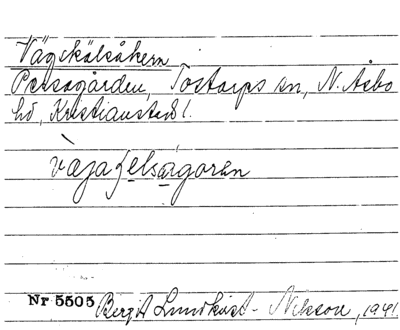 Vägskälsåkern
Persagården, Tostarps sn, N. Åsbo
hd, Kristianstads l.
Nr 5505 Bergit Lundkvist-Nilsson, 1941.